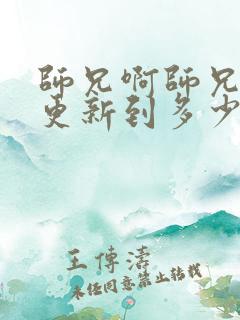 師兄啊師兄
更新到多少
王傳濤
未經同意禁止轉載